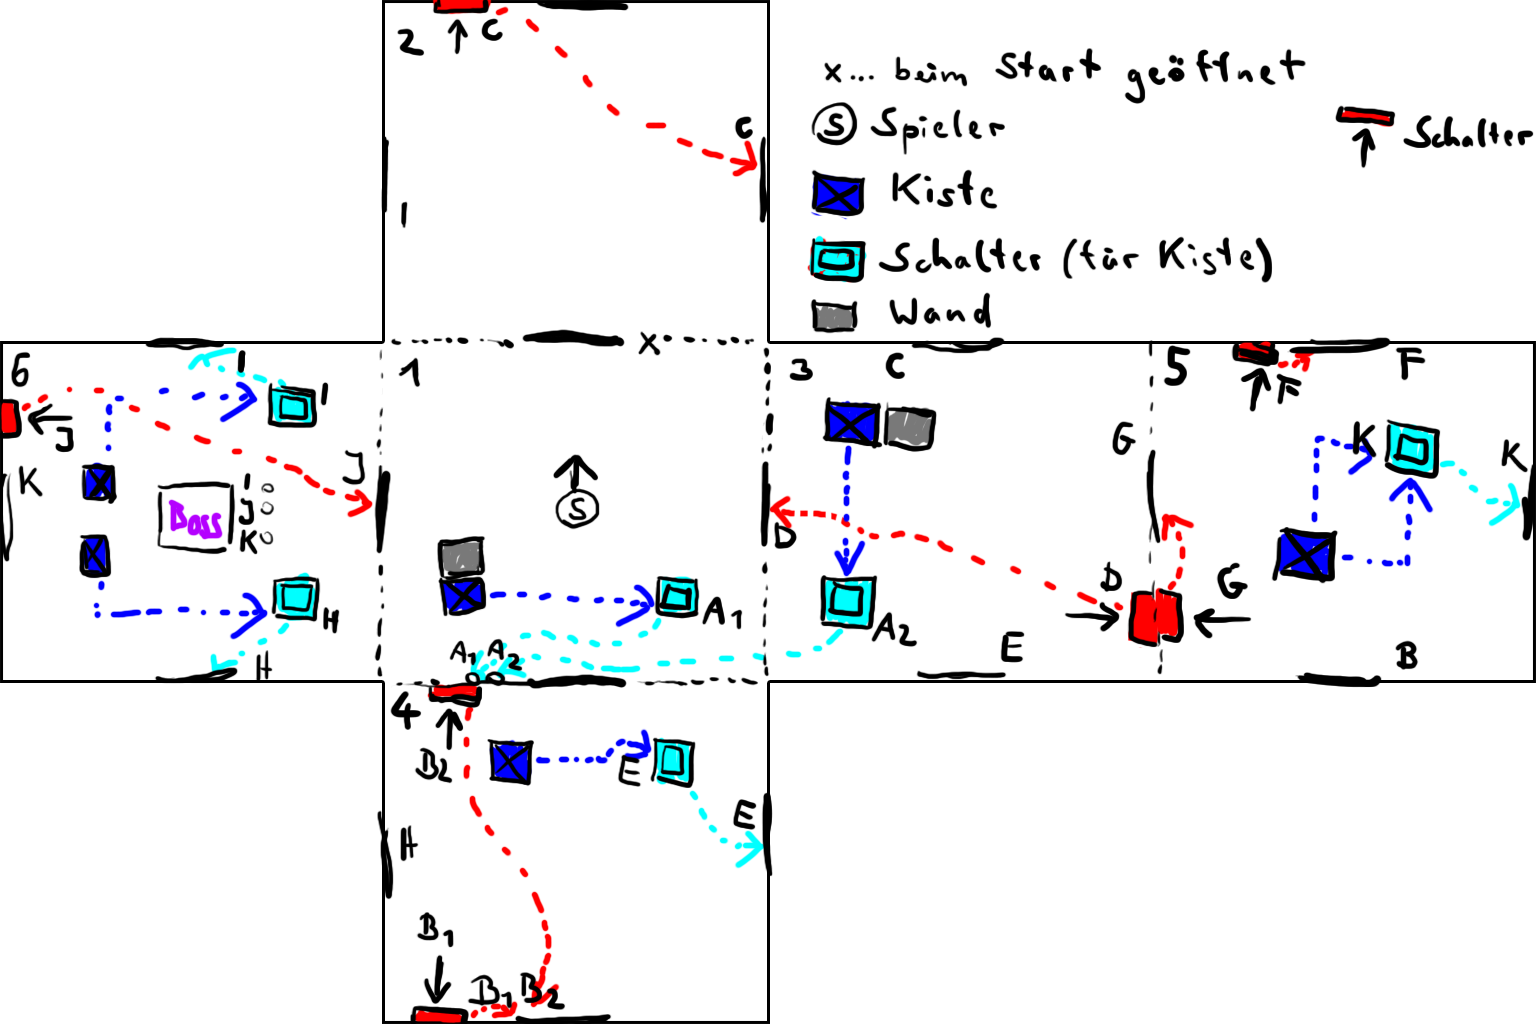 2
C
C
1
x... beim Start geöffnet
S Spieler
Kiste
Schalter (für Kiste)
Wand
Schalter
6
I
I
J
J
K
Boss
I
J
K
H
H
1
x
S
A1
A1 A2
3
C
D
A2
E
D
G
G
5
F
F
K
K
B
4
B2
E
E
H
B1
B1 B2